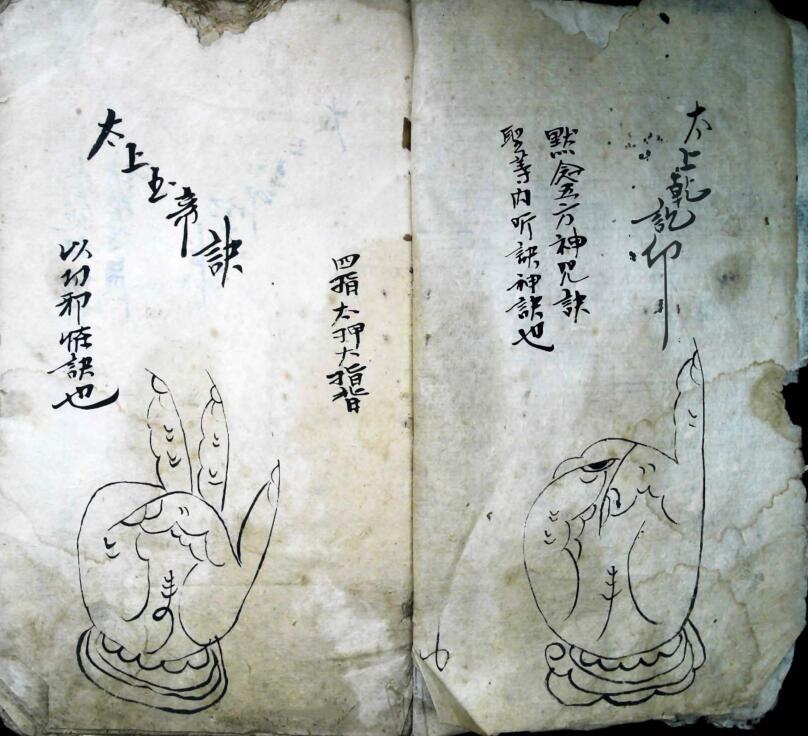 太上乾訖仰
默念五方神咒訣
聖等内听訣神訣也
四指太押大指
太上玉帝訣
以功邪怪訣也